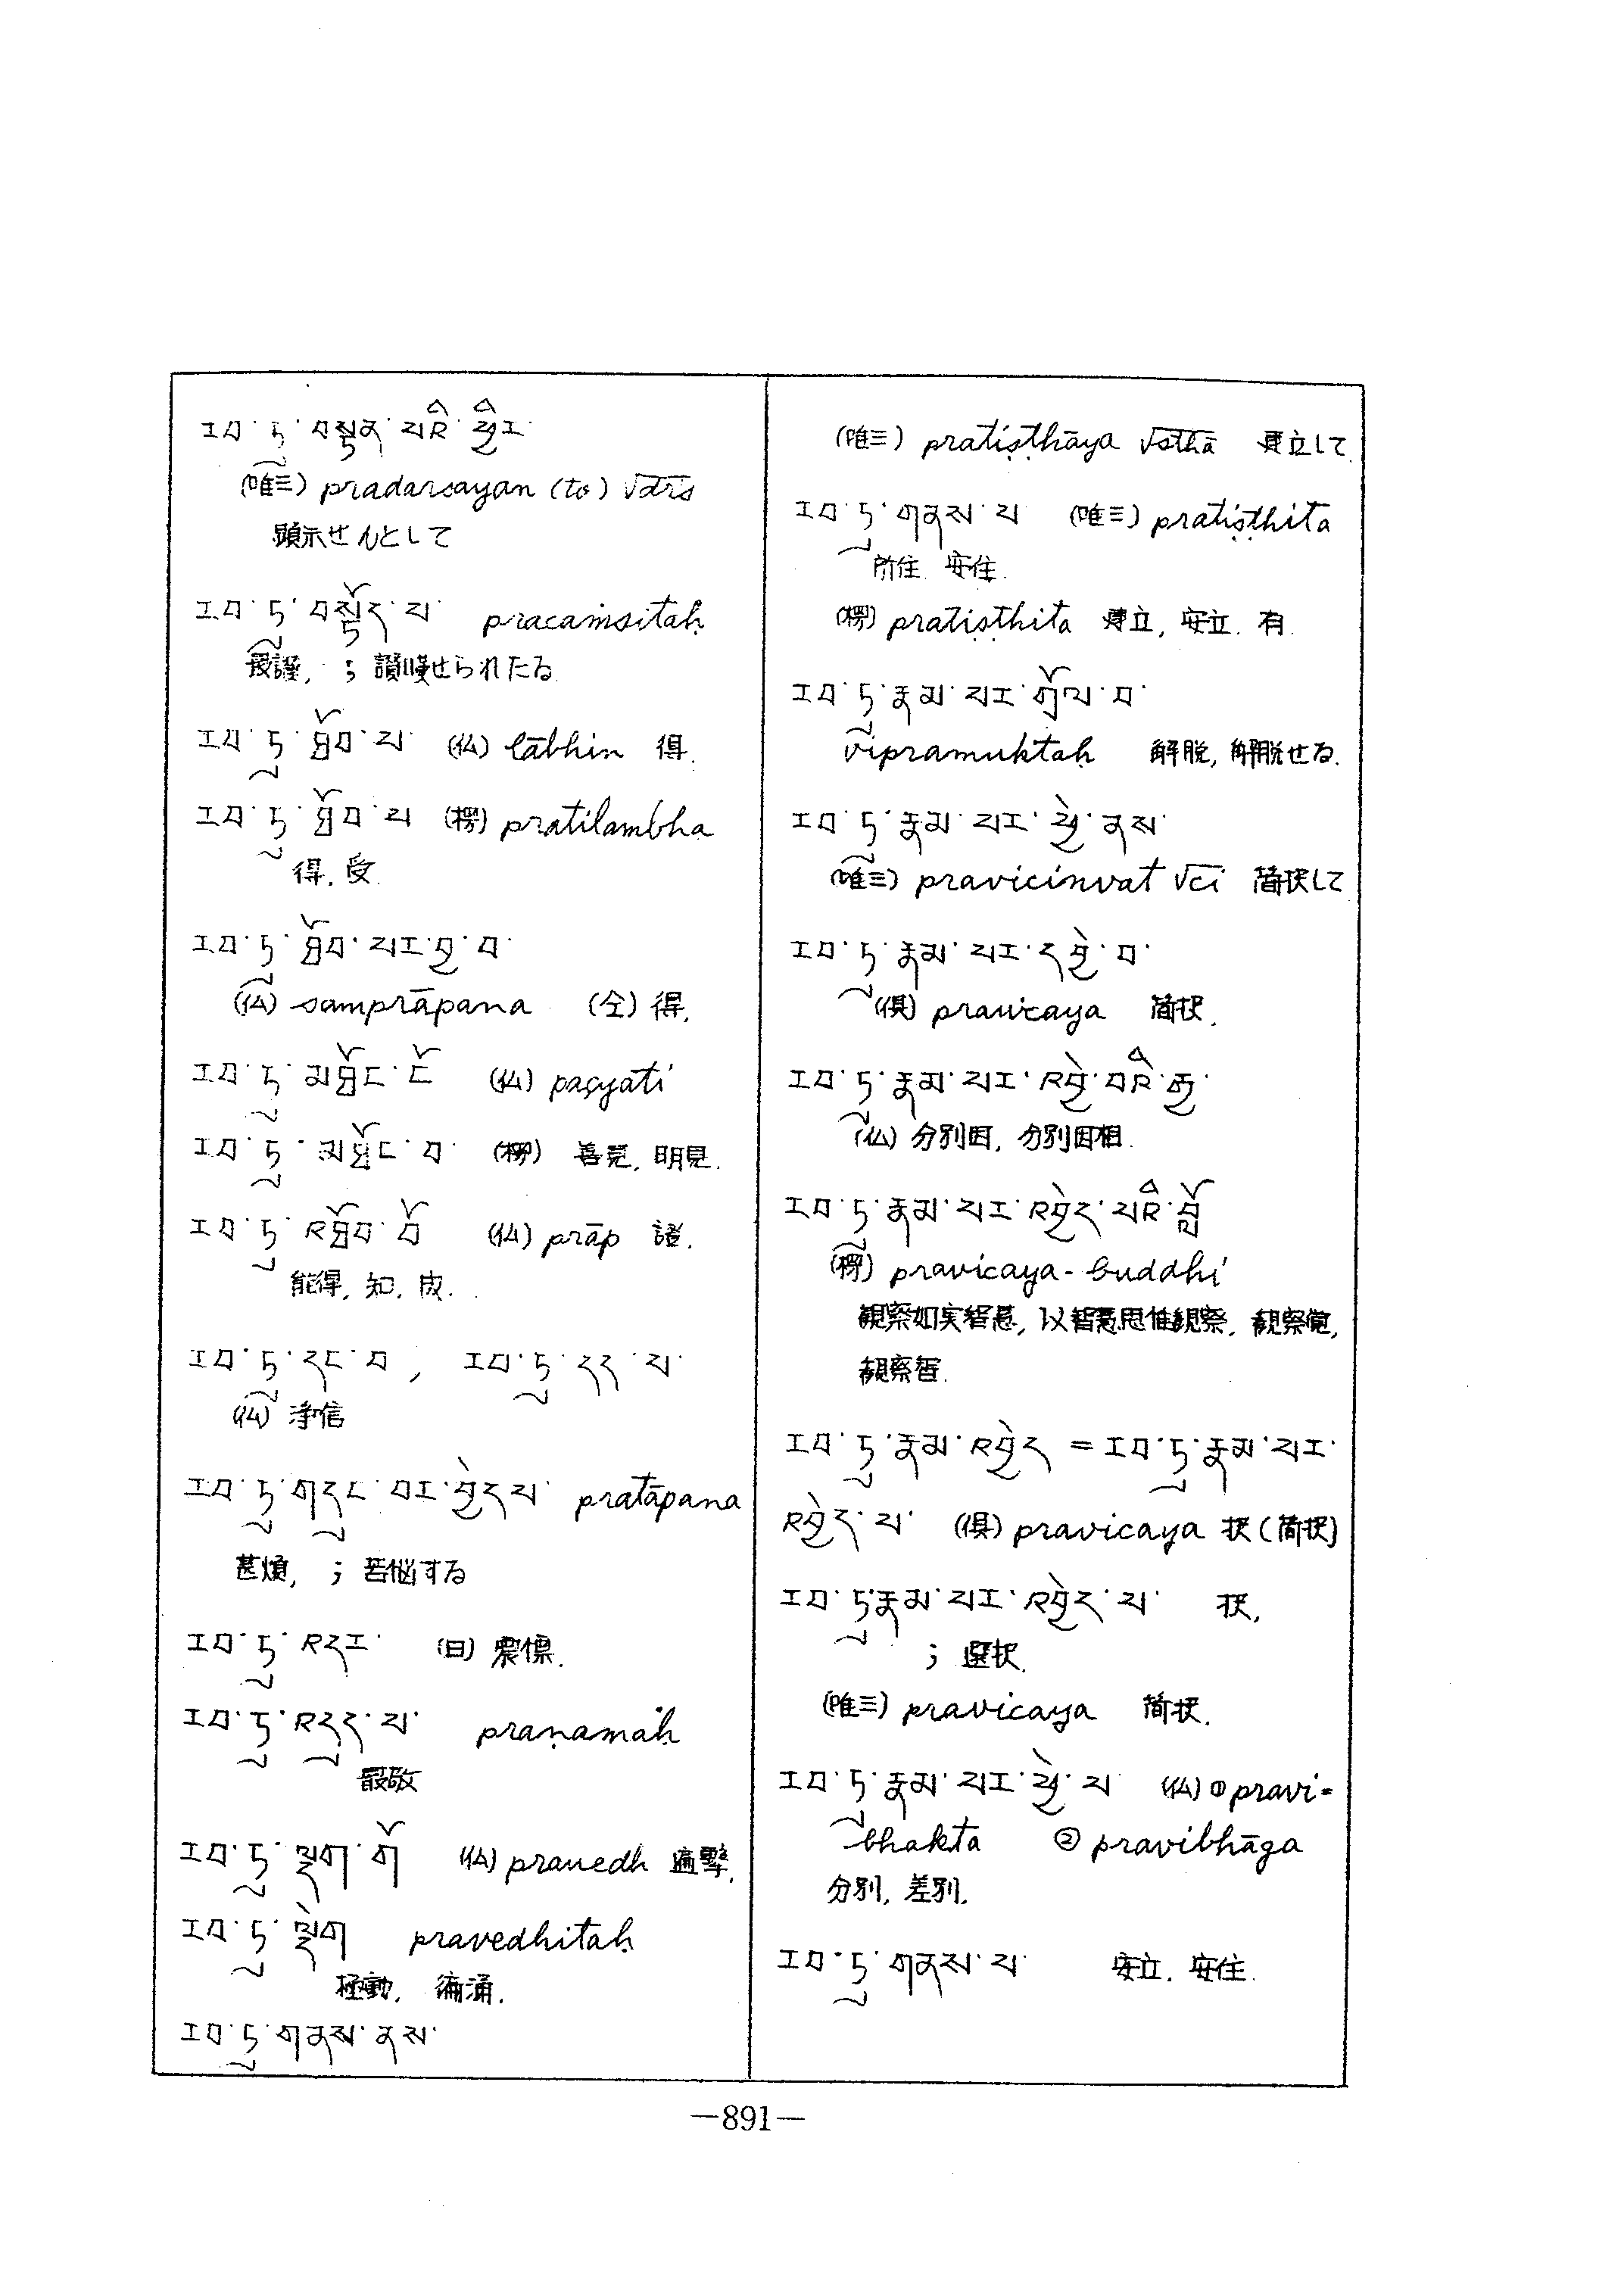 རབ་ཏུ་བསྟན་པའི་ཕྱིར་
(唯三) pradarśayan (to) √dṛś
顕示せんとして
རབ་ཏུ་བསྟོད་པ་ pracaṁsitaḥ
最讃, ; 讃嘆せられたる
རབ་ཏུ་ཐོབ་པ་ (仏) lābhin 得.
རབ་ཏུ་ཐོབ་པ (楞) pratilambha
得, 受.
རབ་ཏུ་ཐོབ་པར་བྱ་བ་
(仏) samprāpana (仝) 得,
རབ་ཏུ་མཐོང་ངོ (仏) paçyati
རབ་ཏུ་མཐོང་བ་ (楞) 善見, 明見.
རབ་ཏུ་འཐོབ་བོ (仏) prāp 證.
能得, 知, 成.
རབ་ཏུ་དང་བ , རབ་ཏུ་དད་པ་
(仏) 浄信
རབ་ཏུ་གདུང་བར་བྱེད་པ་ pratāpana
甚煩, ; 苦悩する
རབ་ཏུ་འདར་ (日) 震慄.
རབ་ཏུ་འདུད་པ་ praṇamaḥ
最敬
རབ་ཏུ་ལྡེག་གོ (仏) pravedh 遍撃,
རབ་ཏུ་ལྡེག pravedhitaḥ
極動, 徧涌,
རབ་ཏུ་གནས་ནས་
(唯三) pratiṣṭhāya √sthā 建立して
རབ་ཏུ་གནས་པ (唯三) pratiṣṭhita
所住, 安住.
(楞) pratiṣṭhita 建立, 安立, 有.
རབ་ཏུ་རྣམ་པར་གྲོལ་བ་
vipramuktaḥ 解脱, 解脱せる.
རབ་ཏུ་རྣམ་པར་ཕྱེ་ནས་
(唯三) pravicinvat √ci 簡択して
རབ་ཏུ་རྣམ་པར་དབྱེ་བ་
(倶) pravicaya 簡択.
རབ་ཏུ་རྣམ་པར་འབྱེ་བའི་རྒྱུ་
(仏) 分別因, 分別因相.
རབ་ཏུ་རྣམ་པར་འབྱེད་པའི་བློ
(楞) pravicaya-buddhi
観察如実智慧, 以智慧思惟観察, 観察覚,
観察智.
རབ་ཏུ་རྣམ་འབྱེད = རབ་ཏུ་རྣམ་པར་
འབྱེད་པ་ (倶) pravicaya 択 (簡択)
རབ་ཏུ་རྣམ་པར་འབྱེད་པ་ 択,
; 選択.
(唯三) pravicaya 簡択.
རབ་ཏུ་རྣམ་པར་ཕྱེ་བ (仏) ① pravi-
bhakta ② pravibhāga
分別, 差別.
རབ་ཏུ་གནས་པ་ 安立, 安住.
—891—